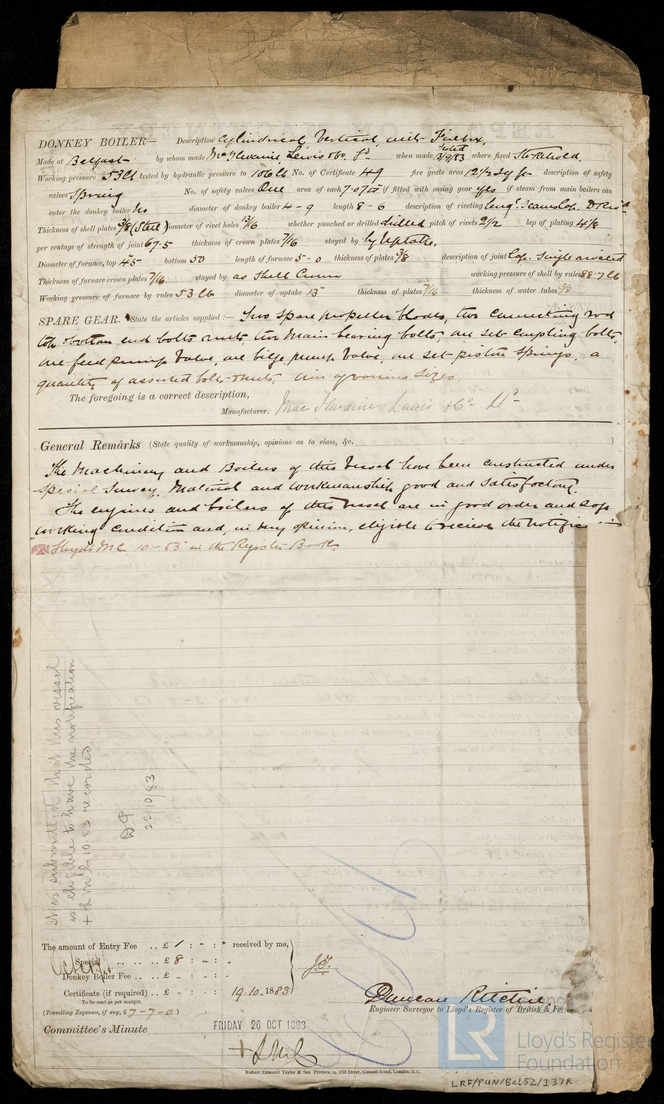 DONKEY BOILER— Description Cylindrical Vertical with Firebox
Made at Belfast by whom made MacIlwaine, Lewis & Co. Ld. when made tested 3/9/83 where fixed Stokehold.
Working pressure 53 lb tested by hydraulic pressure to 106 lb No. of Certificate 49 fire grate area 12 1/2 Sq ft description of safety
valves Spring No. of safety valves One area of each 7·07 □" if fitted with casing gear yes if steam from main boilers can
enter the donkey boiler No diameter of donkey boiler 4-9 length 8-6 description of riveting Long' Seams Lap. D Riv'd
Thickness of shell plates 3/8 (Steel) diameter of rivet holes 13/16 whether punched or drilled drilled pitch of rivets 2 1/2 lap of plating 4 1/8
per centage of strength of joint 67.5 thickness of crown plates 7/16 stayed by by Uptake.
Diameter of furnace, top 45 bottom 50 length of furnace 5-0 thickness of plates 3/8 description of joint Lap. Single riveted
Thickness of furnace crown plates 7/16 stayed by as Shell Crown working pressure of shell by rules 88.7 lb
Working pressure of furnace by rules 53 lb diameter of uptake 13" thickness of plates 7/16 thickness of water tubes 3/8
SPARE GEAR. State the articles supplied:— Two spare propeller blades, two connecting rod
top & bottom end bolts & nuts, two Main bearing bolts, one set coupling bolts,
one feed pump Valve, one bilge pump Valve, one set piston springs, a
quantity of assorted bolts & nuts, iron of various sizes
The foregoing is a correct description,
Manufacturer. MacIlwaine Lewis & Co. Ld
General Remarks (State quality of workmanship, opinions as to class, &c.
The Machinery and Boilers of this Vessel have been constructed under
Special Survey. Material and workmanship good and satisfactory.
The engines and boilers of this vessel are in good order and safe
working condition and, in my opinion, eligible to receive the notific
Lloyds M.C. 10-83 in the Register Book
It is submitted that this vessel
is eligible to have the notification
+ L.M.C. 10.83 recorded.
22/10/83
The amount of Entry Fee .. £ 1 : - : - received by me,
Special .. .. £ 8 : - : -
Donkey Boiler Fee .. £ - : - : -
Certificate (if required) .. £ - : - : 19.10.1883
To be sent as per margin.
(Travelling Expenses, if any, £7-7-0)
Duncan Ritchie
Engineer Surveyor to Lloyd's Register of British &
Committee's Minute
FRIDAY 26 OCT 1883
+ LMC
Robert Edmund Taylor & Son Printers, 19, Old Street, Goswell Road, London, E.C.
LR
Lloyd's Register
Foundation
LRF/PUN/BEL52/137R